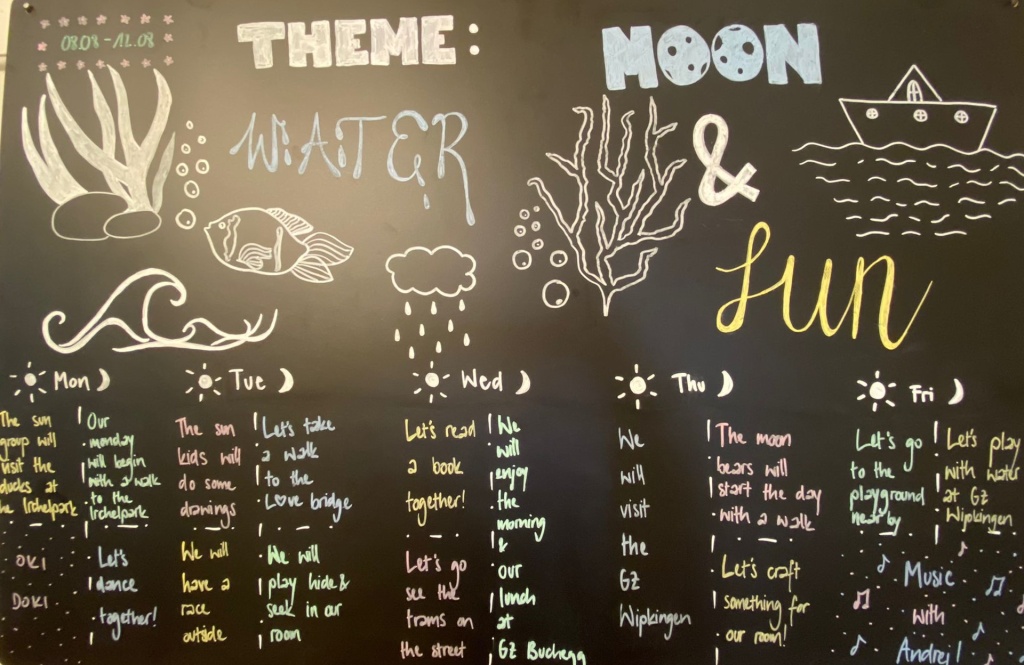 08.08 - 12.08
THEME:
WATER
MOON
&
Sun
Mon
The sun
group will
visit the
ducks at
the Irchelpark
OKI
DOKI
Our
monday
will begin
with a walk
to the
Irchelpark
Let's
dance
together!
Tue
The sun
kids will
do some
drawings
We will
have a
race
outside
Let's take
a walk
to the
Love bridge
We will
play hide &
seek in our
room
Wed
Let's read
a book
together!
Let's go
see the
trams on
the street
We
will
enjoy
the
morning
&
our
lunch
at
GZ Buchegg
Thu
We
will
visit
the
GZ
Wipkingen
The moon
bears will
start the day
with a walk
Let's craft
something for
our room!
Fri
Let's go
to the
playground
near by
Let's play
with water
at GZ
Wipkingen
Music
with
Andrej!